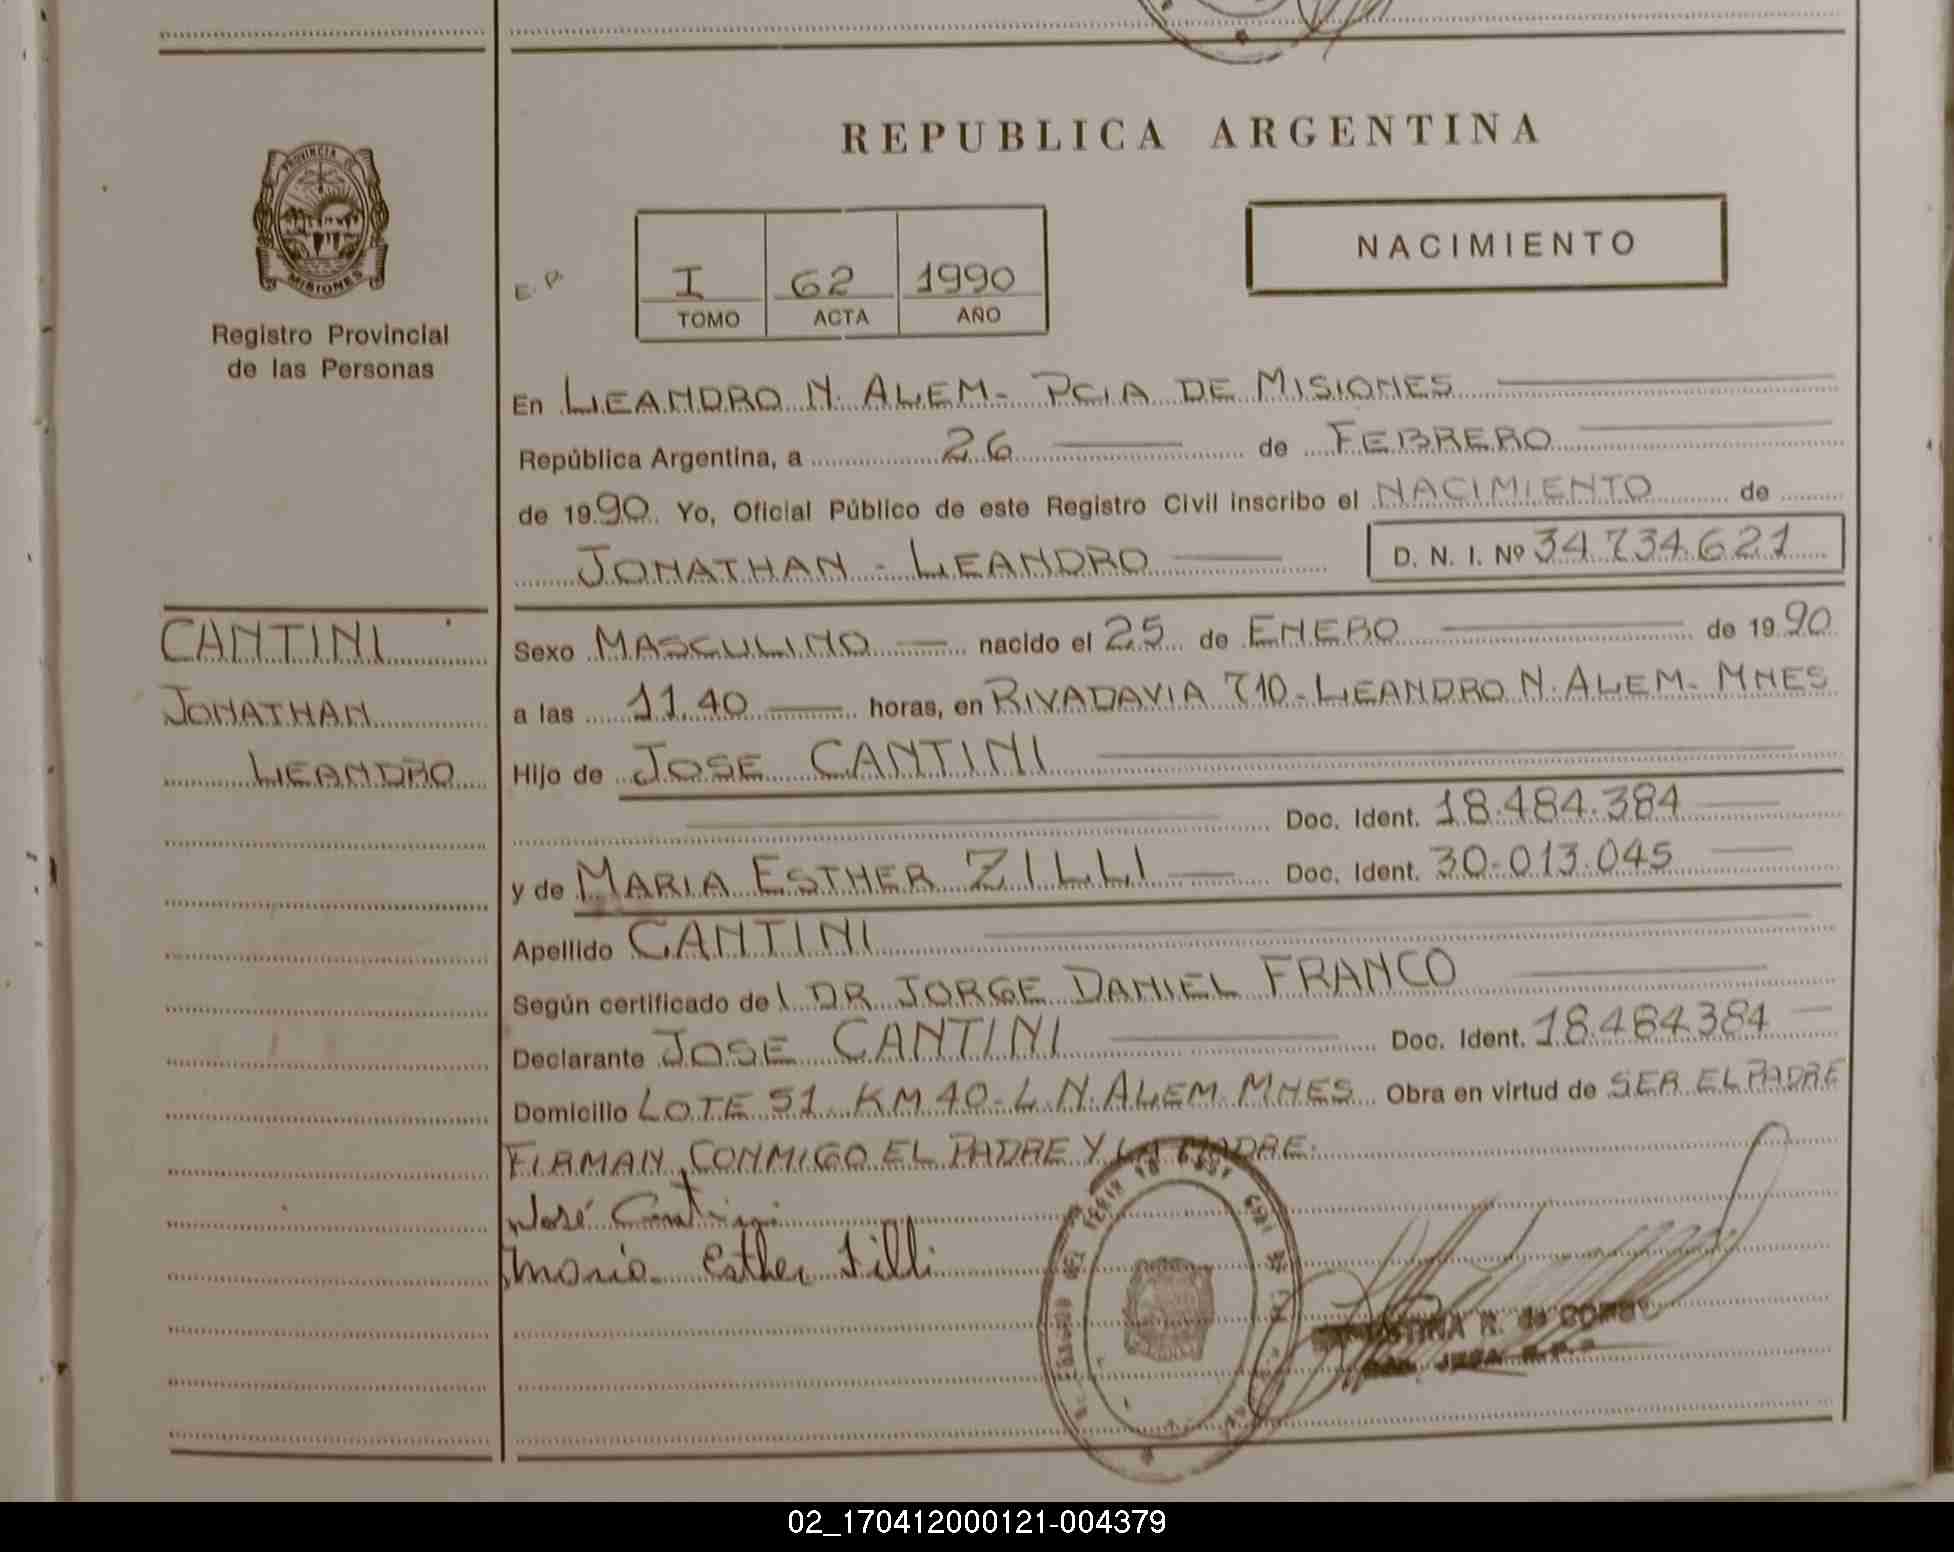 REPUBLICA ARGENTINA
PROVINCIA DE
MISIONES
Registro Provincial
de las Personas
E. P.
I 62 1990
TOMO ACTA AÑO
NACIMIENTO
En LEANDRO N. ALEM- PCIA DE MISIONES
República Argentina, a 26 de FEBRERO
de 1990. Yo, Oficial Público de este Registro Civil inscribo el NACIMIENTO de
JONATHAN - LEANDRO D. N. I. Nº 34.734.621
CANTINI
JONATHAN
LEANDRO
Sexo MASCULINO nacido el 25 de ENERO de 1990
a las 11.40 horas, en RIVADAVIA 710- LEANDRO N. ALEM- MNES
Hijo de JOSE CANTINI
Doc. Ident. 18.484.384
y de MARIA ESTHER ZILLI Doc. Ident. 30-013.045
Apellido CANTINI
Según certificado del DR JORGE DANIEL FRANCO
Declarante JOSE CANTINI Doc. Ident. 18.484.384
Domicilio LOTE 51 KM 40- L.N. ALEM- MNES Obra en virtud de SER EL PADRE
FIRMAN CONMIGO EL PADRE Y LA MADRE.
José Cantini
Maria Esther Zilli
02_170412000121-004379